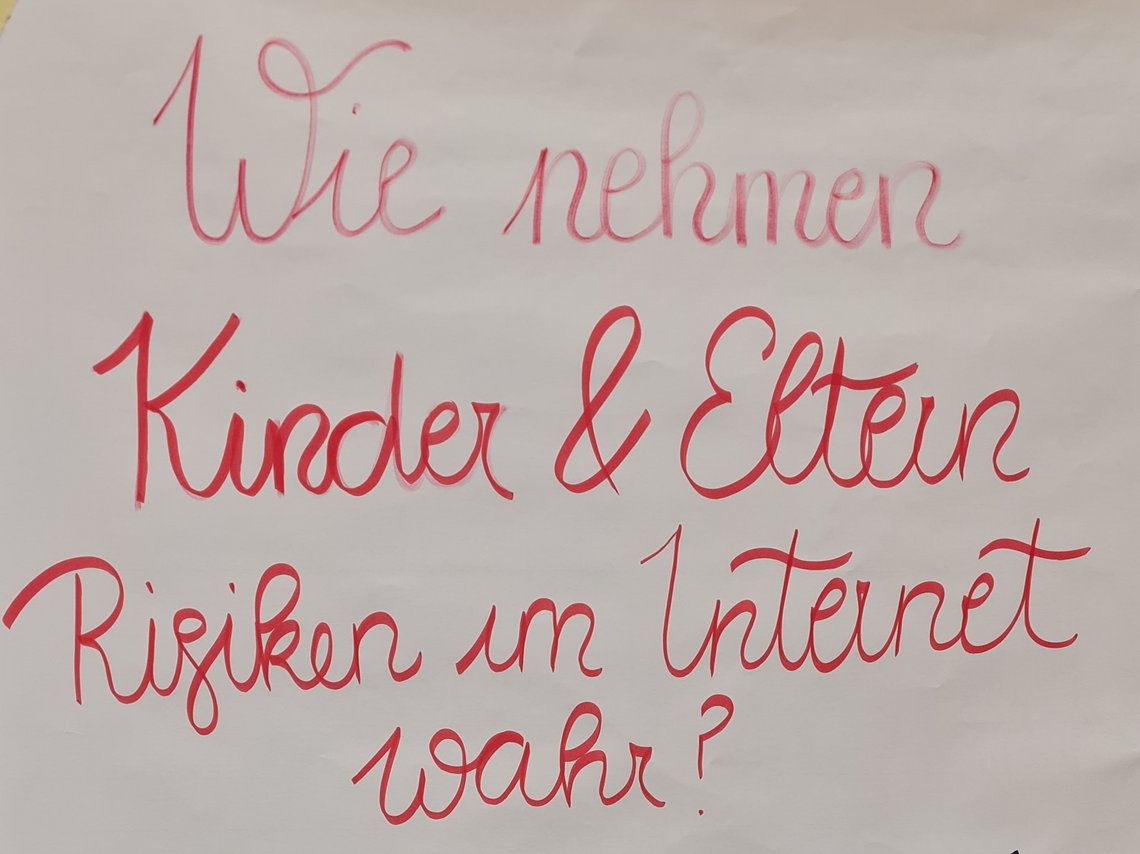 Wie nehmen
Kinder & Eltern
Risiken im Internet
wahr?